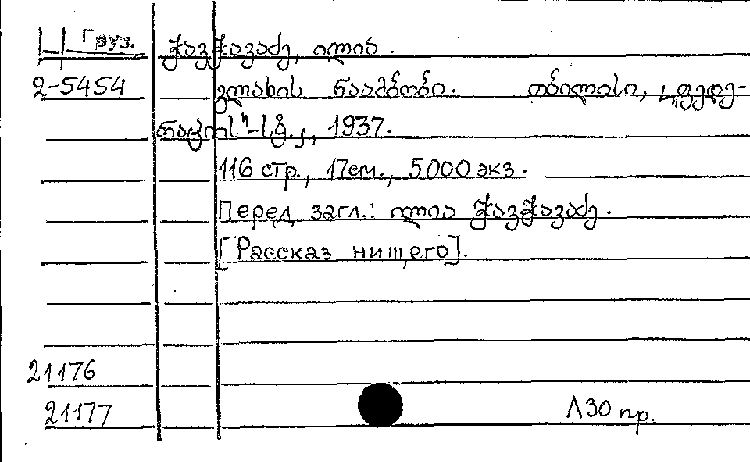 Ц Груз. ჭავჭავაძე, ილია.
2-5454 გლახის ნაამბობი. თბილისი, „ფედე-
რაცია"-ს.გ.,, 1937.
116 стр., 17см., 5000 экз.
Перед загл.: ილია ჭავჭავაძე.
[Рассказ нищего].
21176
21177 Л30 пр.